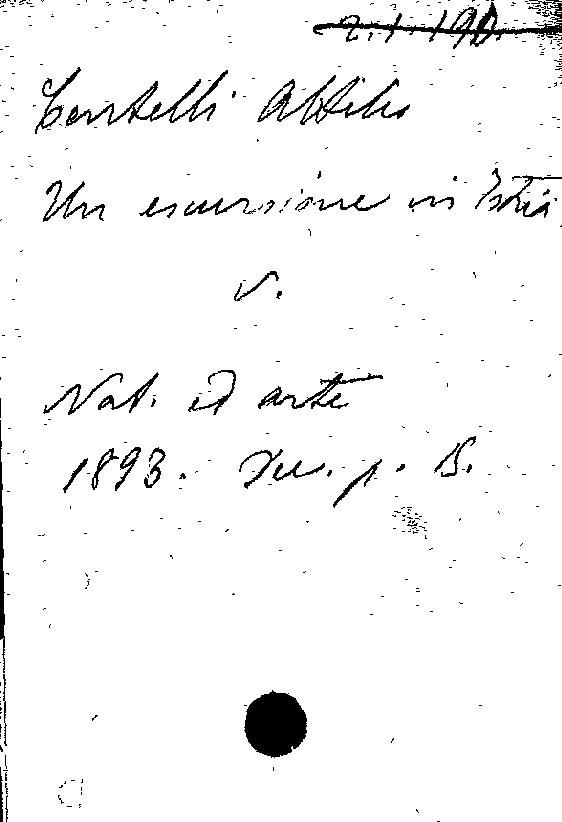 2.1.190
Centelli Attilio
Un escursione in Istria
v.
Nat. ed arte
1893. p. 5.